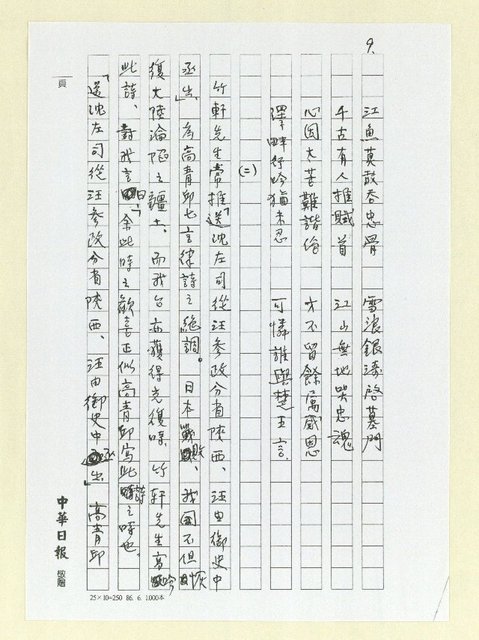 9.
江魚莫敢吞忠骨　雪浪銀濤啓墓門
千古有人推賦首　江山無地哭忠魂
心固大苦難諧俗　才不留餘厲感恩
澤畔行吟猶未忍　可憐誰與楚王言.
(二)
竹軒先生常推「送沈左司從汪參政分省陝西、汪由御史中
丞出」為高青邱七言律詩之絕調。日本戰敗、我國不但恢
復大陸淪陷之疆土、而我台亦獲得光復時、竹軒先生高吟
此詩、對我言曰、「余此時之歡喜正似高青邱寫此詩之時也、
「送沈左司從汪參政分省陝西、汪由御史中丞出」高青邱
頁
中華日報 敬贈
25×10=250 86. 6. 1,000本